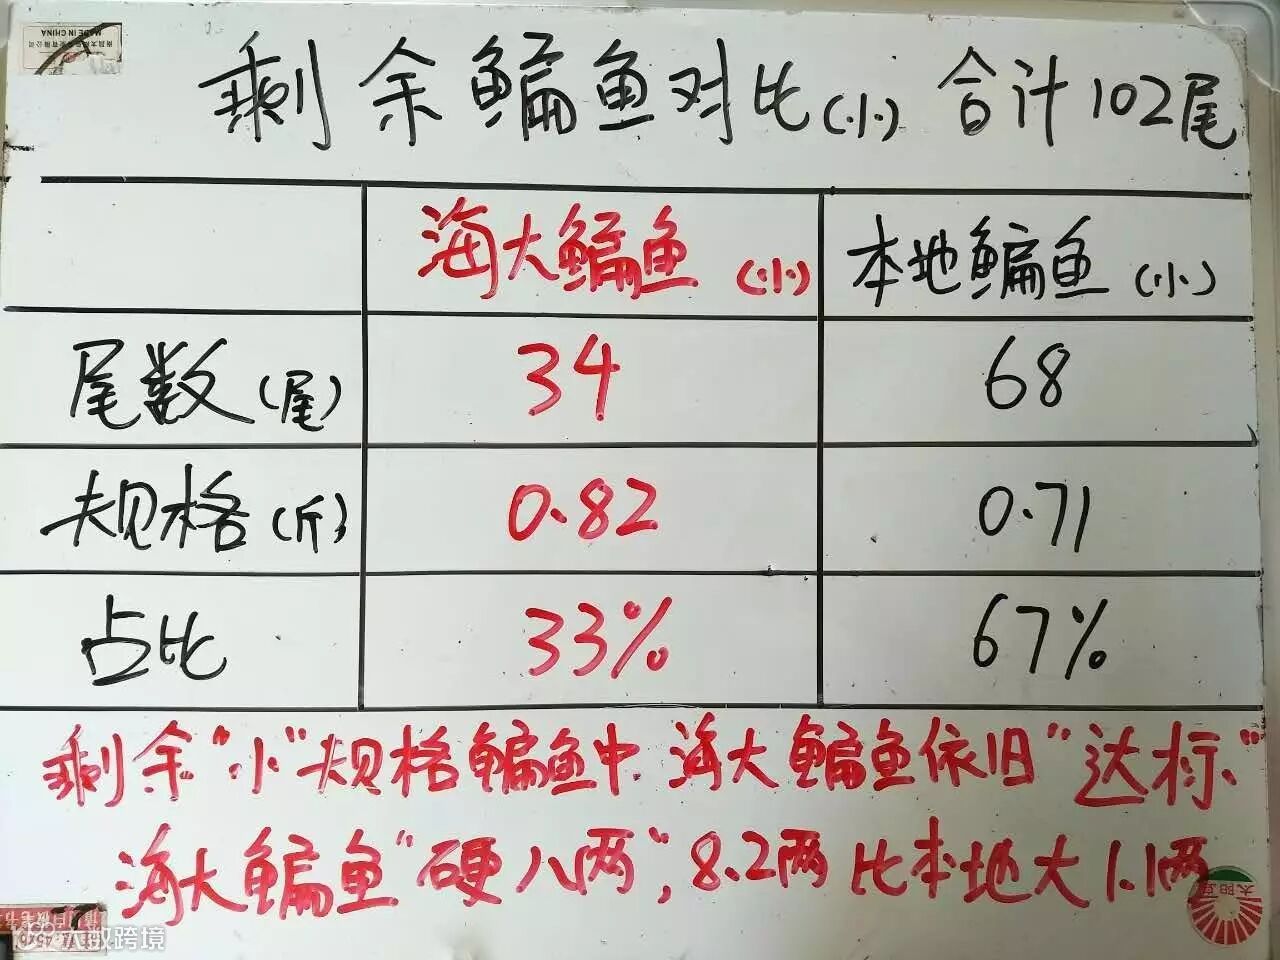 MADE IN CHINA
剩余鳊鱼对比(小) 合计102尾
海大鳊鱼(小) 本地鳊鱼(小)
尾数(尾) 34 68
规格(斤) 0.82 0.71
占比 33% 67%
剩余"小"规格鳊鱼中 海大鳊鱼依旧"达标"
海大鳊鱼"硬八两",8.2两比本地大1.1两
太阳
大数跨境